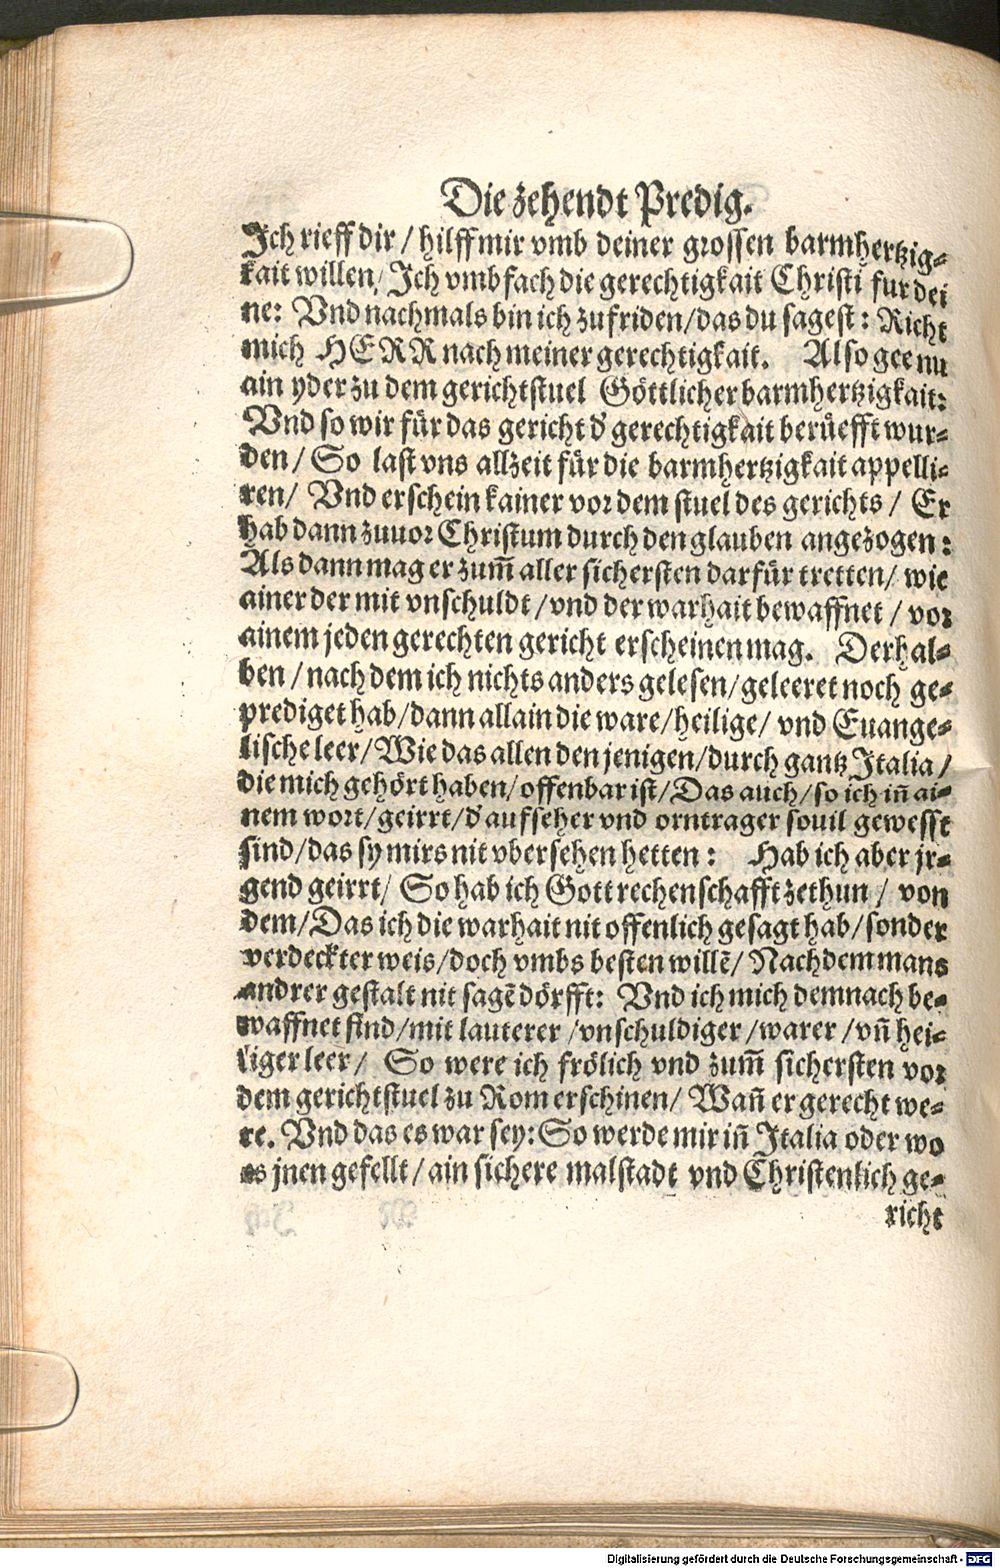 Die zehendt Predig.
Ich rieff dir / hilff mir vmb deiner grossen barmhertzig⸗
kait willen / Ich vmbfach die gerechtigkait Christi fur dei
ne: Vnd nachmals bin ich zufriden / das du sagest: Richt
mich HERR nach meiner gerechtigkait. Also gee nu
ain yder zu dem gerichtstuel Göttlicher barmhertzigkait:
Vnd so wir für das gericht d' gerechtigkait berüefft wur⸗
den / So last vns allzeit für die barmhertzigkait appelli⸗
ren / Vnd erschein kainer vor dem stuel des gerichts / Er
hab dann zuuor Christum durch den glauben angezogen:
Als dann mag er zum̃ aller sichersten darfür tretten / wie
ainer der mit vnschuldt / vnd der warhait bewaffnet / vor
ainem jeden gerechten gericht erscheinen mag. Derhal⸗
ben / nach dem ich nichts anders gelesen / geleeret noch ge⸗
prediget hab / dann allain die ware / heilige / vnd Euange⸗
lische leer / Wie das allen den jenigen / durch gantz Italia /
die mich gehört haben / offenbar ist / Das auch / so ich iñ ai⸗
nem wort / geirrt / d' aufseher vnd orntrager souil gewesst
sind / das sy mirs nit vbersehen hetten: Hab ich aber jr⸗
gend geirrt / So hab ich Gott rechenschafft zethun / von
dem / Das ich die warhait nit offenlich gesagt hab / sonder
verdeckter weis / doch vmbs besten willẽ / Nachdem mans
andrer gestalt nit sagẽ dörfft: Vnd ich mich demnach be⸗
waffnet find / mit lauterer / vnschuldiger / warer / vñ hei⸗
liger leer / So were ich frölich vnd zum̃ sichersten vor
dem gerichtstuel zu Rom erschinen / Wañ er gerecht we⸗
re. Vnd das es war sey: So werde mir iñ Italia oder wo
es jnen gefellt / ain sichere malstadt vnd Christenlich ge⸗
richt
Digitalisierung gefördert durch die Deutsche Forschungsgemeinschaft - DFG